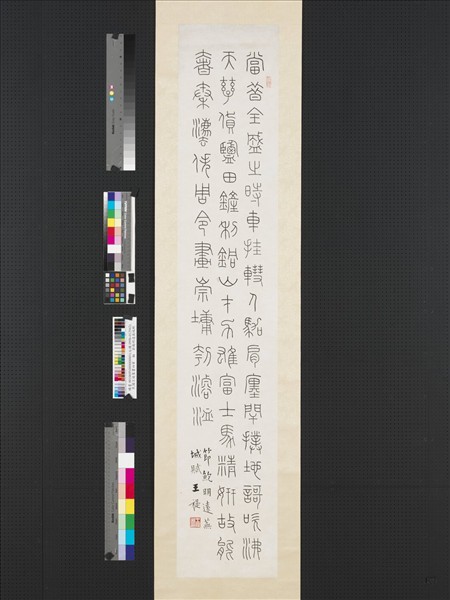 當昔全盛之時車挂轊人駕肩廛閈撲地謌吹沸
天孳貨鹽田鏟利銅山才力雄富士馬精妍故能
奢秦灋佚周令畫崇墉刳濬洫
節鮑明遠蕪
城賦 王禔